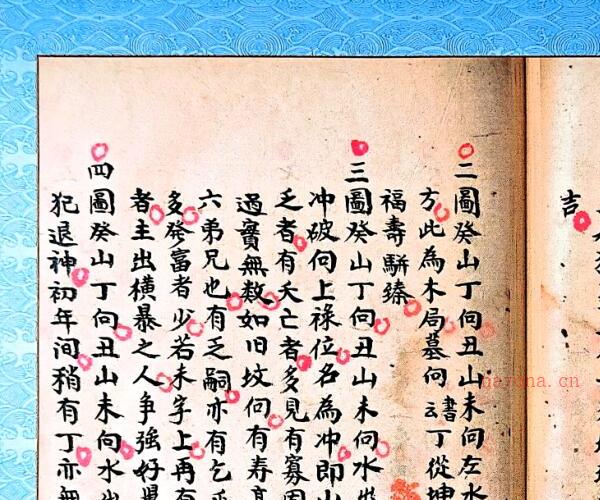 吉
二圖癸山丁向丑山未向左水
方此為木局墓向書云丁從坤
福壽駢臻
三圖癸山丁向丑山未向水
冲破向上祿位名為冲即山
乏者有夭亡者多見有寡
過實無数如旧坟向有寿高
六弟兄也有乏嗣亦有乞
多發富者少若未字上再有
者主出横暴之人争強好
四圖癸山丁向丑山未向水出
犯退神初年间稍有丁亦無